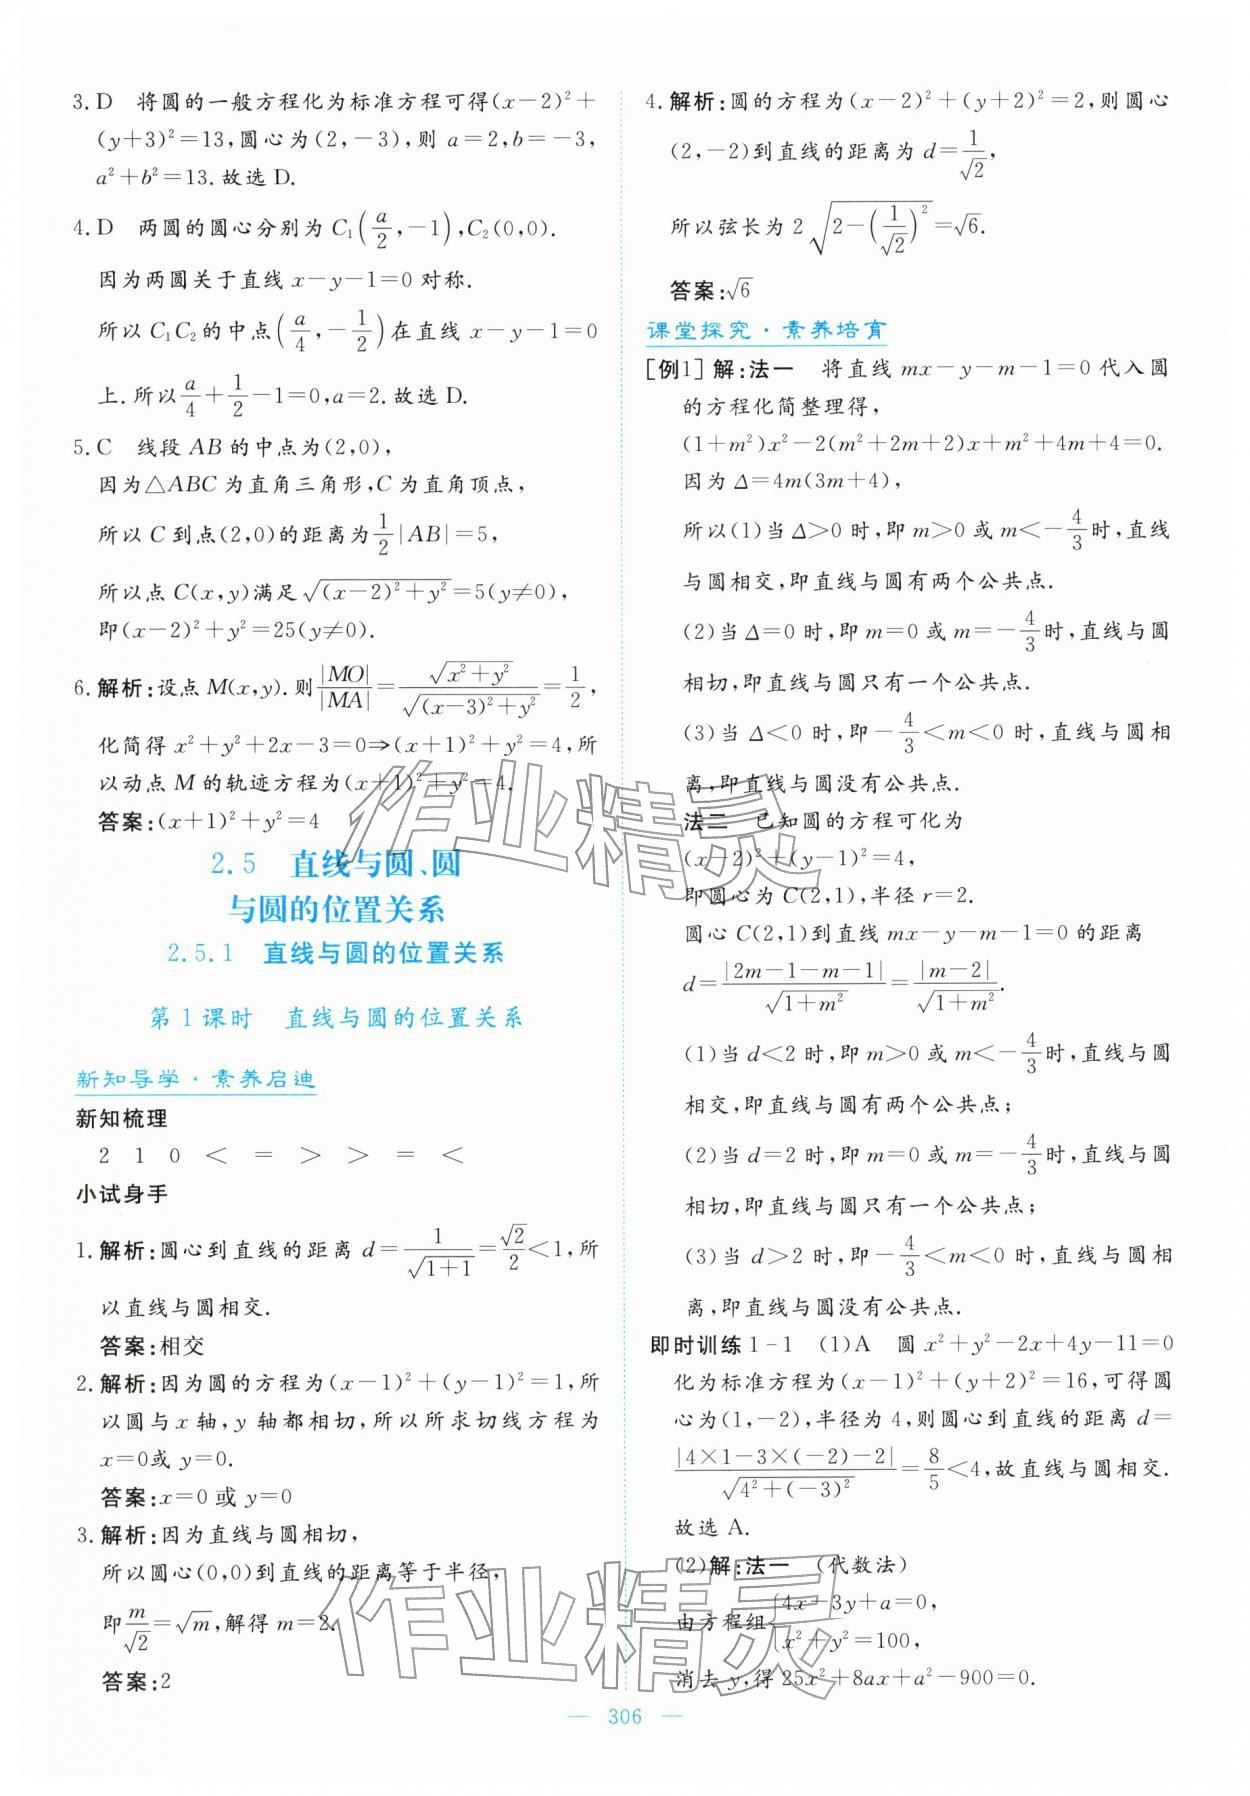 3. D　将圆的一般方程化为标准方程可得(x－2)²＋
(y+3)²=13,圆心为(2,－3),则 a=2,b=－3,
a²+b²=13.故选 D.
4. D　两圆的圆心分别为 C₁(a/2,－1),C₂(0,0).
因为两圆关于直线 x－y－1=0 对称.
所以 C₁C₂的中点(a/4,－1/2)在直线 x－y－1=0
上.所以a/4+1/2－1=0,a=2.故选 D.
5. C　线段 AB 的中点为(2,0),
因为△ABC 为直角三角形,C为直角顶点,
所以 C 到点(2,0)的距离为1/2|AB|=5,
所以点 C(x,y)满足√((x－2)²+y²)=5(y≠0),
即(x－2)²+y²=25(y≠0).
6. 解析:设点 M(x,y).则|MO|/|MA|=√(x²+y²)/√((x－3)²+y²)=1/2,
化简得 x²+y²+2x－3=0⇒(x+1)²+y²=4,所
以动点 M 的轨迹方程为(x+1)²+y²=4.
答案:(x+1)²+y²=4
2.5　直线与圆、圆
与圆的位置关系
2.5.1　直线与圆的位置关系
第 1 课时　直线与圆的位置关系
新知导学·素养启迪
新知梳理
2　1　0　<　=　>　>　=　<
小试身手
1. 解析:圆心到直线的距离 d=1/√(1+1)=√2/2<1,所
以直线与圆相交.
答案:相交
2. 解析:因为圆的方程为(x－1)²+(y－1)²=1,所
以圆与 x 轴,y 轴都相切,所以所求切线方程为
x=0或 y=0.
答案:x=0 或 y=0
3. 解析:因为直线与圆相切,
所以圆心(0,0)到直线的距离等于半径,
即m/√2=√m,解得 m=2.
答案:2
4. 解析:圆的方程为(x－2)²+(y+2)²=2,则圆心
(2,－2)到直线的距离为 d=1/√2,
所以弦长为 2√(2－(1/√2)²)=√6.
答案:√6
课堂探究·素养培育
[例1] 解:法一　将直线 mx－y－m－1=0 代入圆
的方程化简整理得,
(1+m²)x²－2(m²+2m+2)x+m²+4m+4=0.
因为 Δ=4m(3m+4),
所以(1)当 Δ>0 时,即 m>0 或 m<－4/3时,直线
与圆相交,即直线与圆有两个公共点.
(2)当 Δ=0 时,即 m=0 或 m=－4/3时,直线与圆
相切,即直线与圆只有一个公共点.
(3)当 Δ<0 时,即－4/3<m<0 时,直线与圆相
离,即直线与圆没有公共点.
法二　已知圆的方程可化为
(x－2)²+(y－1)²=4,
即圆心为 C(2,1),半径 r=2.
圆心 C(2,1)到直线 mx－y－m－1=0 的距离
d=|2m－1－m－1|/√(1+m²)=|m－2|/√(1+m²).
(1)当 d<2 时,即 m>0 或 m<－4/3时,直线与圆
相交,即直线与圆有两个公共点;
(2)当 d=2 时,即 m=0 或 m=－4/3时,直线与圆
相切,即直线与圆只有一个公共点;
(3)当 d>2 时,即－4/3<m<0 时,直线与圆相
离,即直线与圆没有公共点.
即时训练 1-1　(1)A　圆 x²+y²－2x+4y－11=0
化为标准方程为(x－1)²+(y+2)²=16,可得圆
心为(1,－2),半径为 4,则圆心到直线的距离 d=
|4×1－3×(－2)－2|/√(4²+(－3)²)=8/5<4,故直线与圆相交.
故选 A.
(2)解:法一　(代数法)
由方程组{4x－3y+a=0,
x²+y²=100,
消去 y,得 25x²+8ax+a²－900=0.
作业精灵
作业精灵
— 306 —